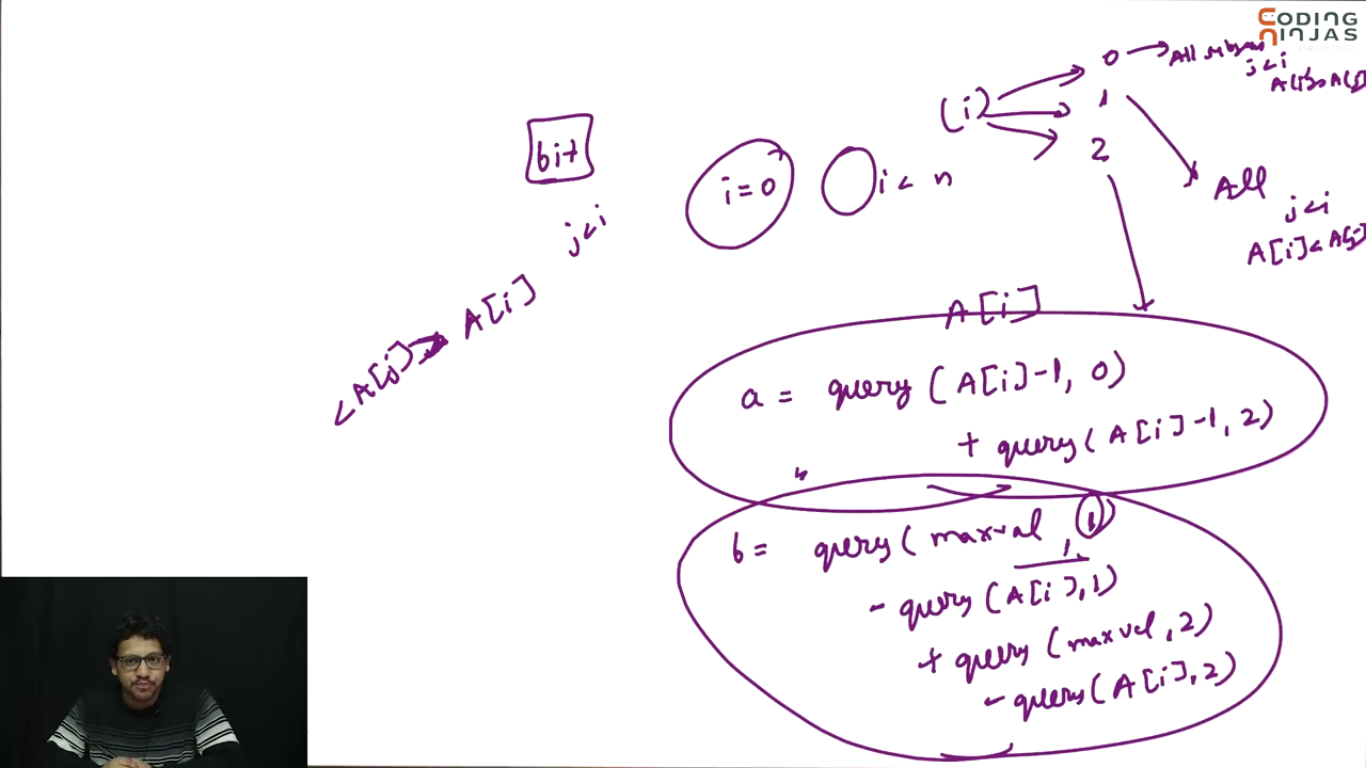 CODING
NINJAS
0 → All
j < i
1
(i)
2
bit
i = 0
i < n
All
j < i
A[i] < A[j]
j < i
A[i]
< A[j]
A[i]
a = query (A[i]-1, 0)
+ query (A[i]-1, 2)
b = query ( maxval , 1)
- query (A[i], 1)
+ query (maxval , 2)
- query (A[i], 2)